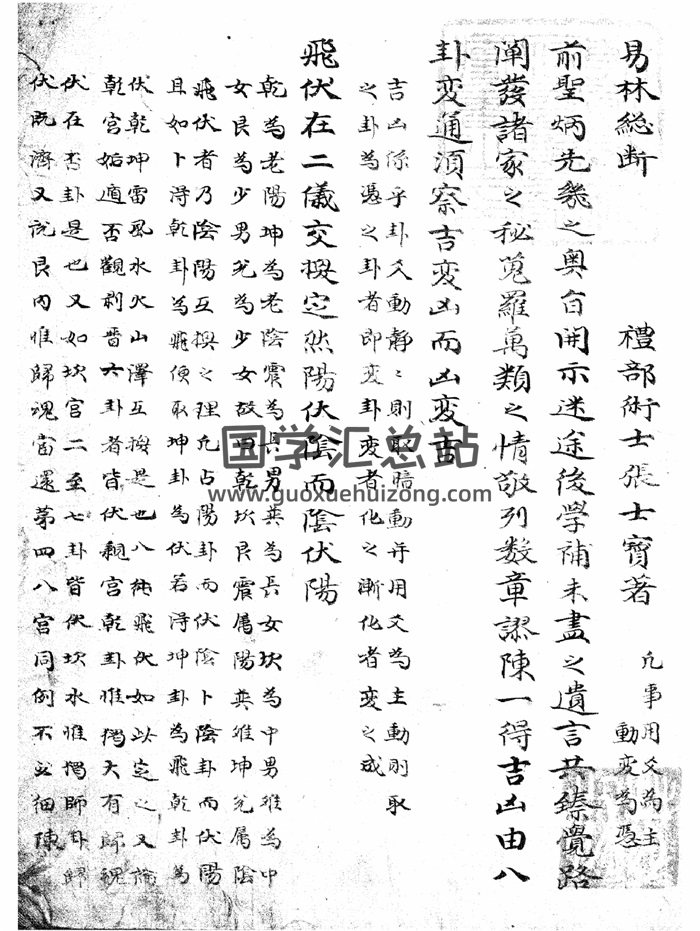 易林総断　禮部術士張士寳著　凢事用爻為主
動変為憑
前聖炳先㡬之奥旨開示迷途後學補未盡之遺言共臻覺路
闡發諸家之秘蒐羅萬類之情敬列数章謬陳一得吉凶由八
卦変通須察吉変凶而凶変吉
吉凶係乎卦爻動靜〻則取暗動并用爻為主動則取
之卦為憑之卦者即変卦変者化之漸化者変之成
飛伏在二儀交換定然陽伏陰而陰伏陽
乾為老陽坤為老陰震為長男巽為長女坎為中男離為中
女艮為少男兌為少女故曰乾坎艮震属陽巽離坤兌属陰
飛伏者乃陰陽互換之理凢占陽卦而伏陰卜陰卦而伏陽
且如卜淂乾卦為飛便取坤卦為伏若淂坤卦為飛乾卦為
伏乾坤雷風水火山澤互換是也八純飛伏如此定之又論
乾宮姤遁否觀剥晋六卦者皆伏親宮乾卦惟獨大有歸魂
伏在否卦是也又如坎宮二至七卦皆伏坎水惟獨師卦歸
伏既濟又說艮内惟歸魂當還第四八宮同例不必細陳
国学汇总站
www.guoxuehuizong.com